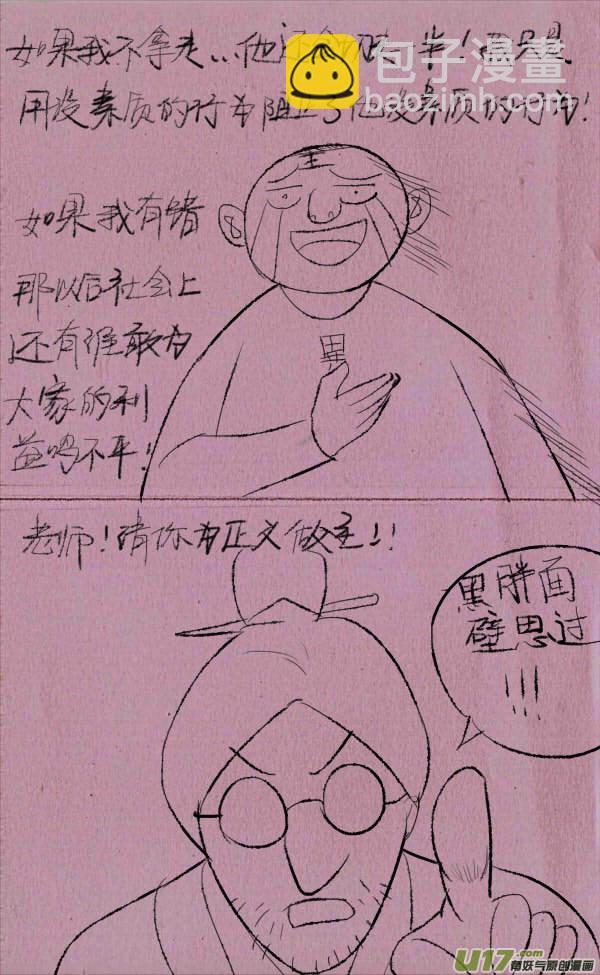 如果我不拿走…他还会
用没素质的行为阻止了他没素质的行为!
如果我有错
那以后社会上
还有谁敢为
大家的利
益鸣不平!
王
黑
老师!请你为正义做主!!
黑胖面
壁思过
!!!
包子漫畫
baozimh.com
U17.com
有妖气原创漫画